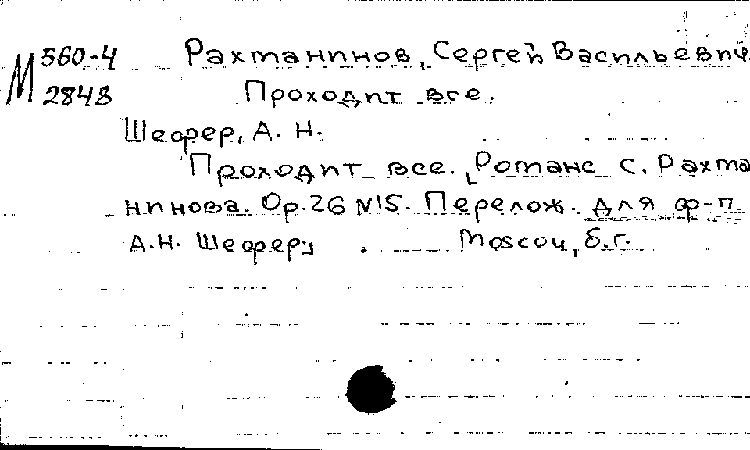 М 560-4 Рахманинов, Сергей Васильевич
2843 Проходит все.
Шефер, А. Н.
Проходит все. Романс С. Рахма
нинова. Ор. 26 №15. Перелож. для ф-п
А.Н. Шефер
Москоч, б.г.